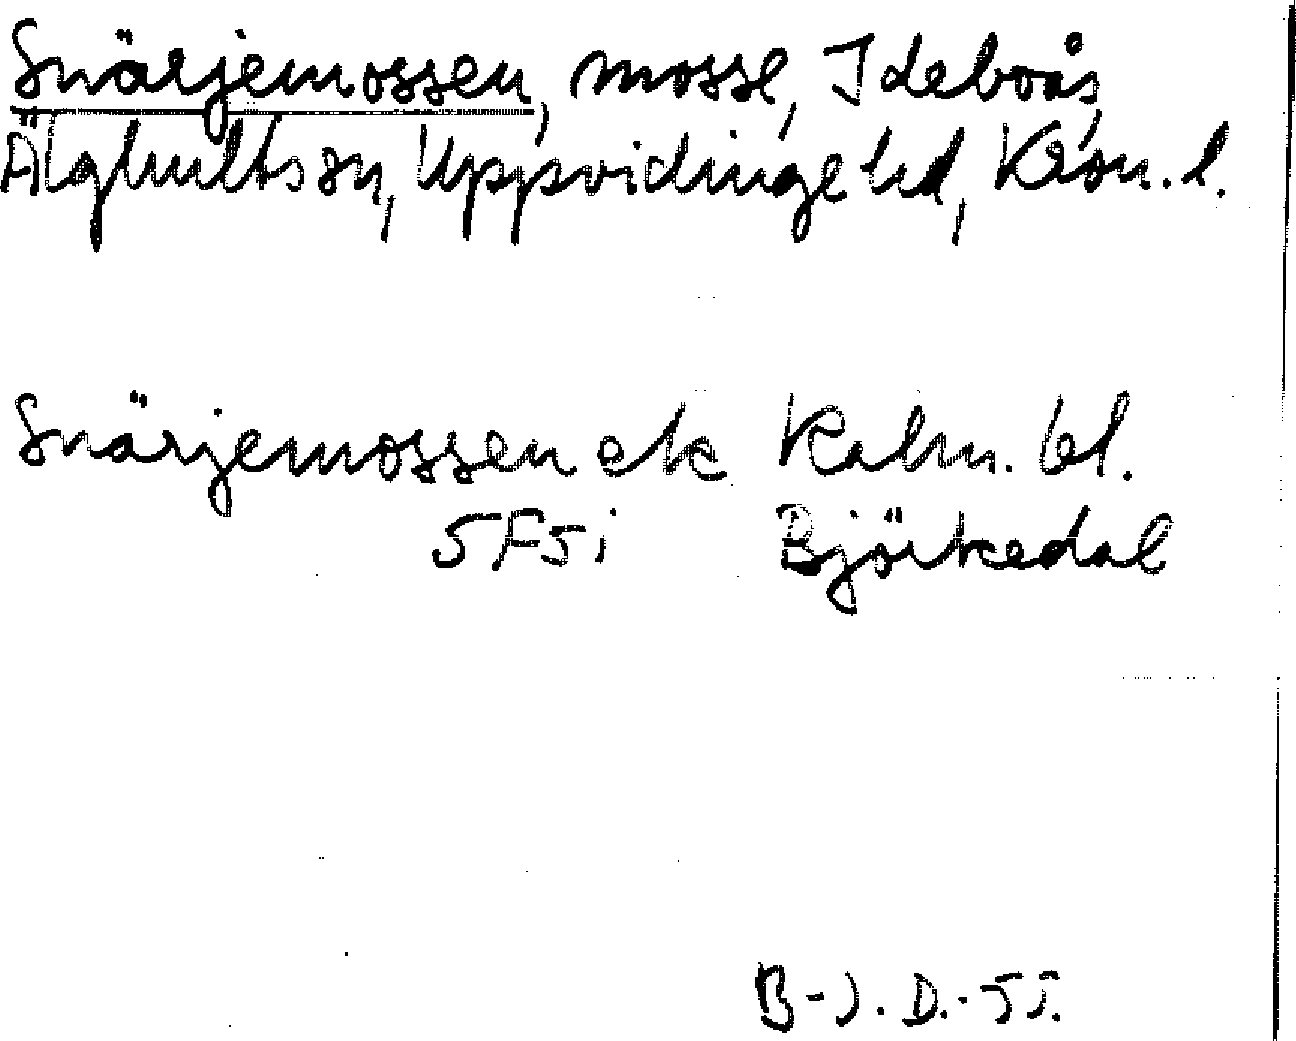 Snärjemossen, mosse, Ideboås,
Älghults sn, Uppvidinge hd, Kron. l.
Snärjemossen ek Kalm. bl.
5F5i Björkedal
B-J. D. -55.